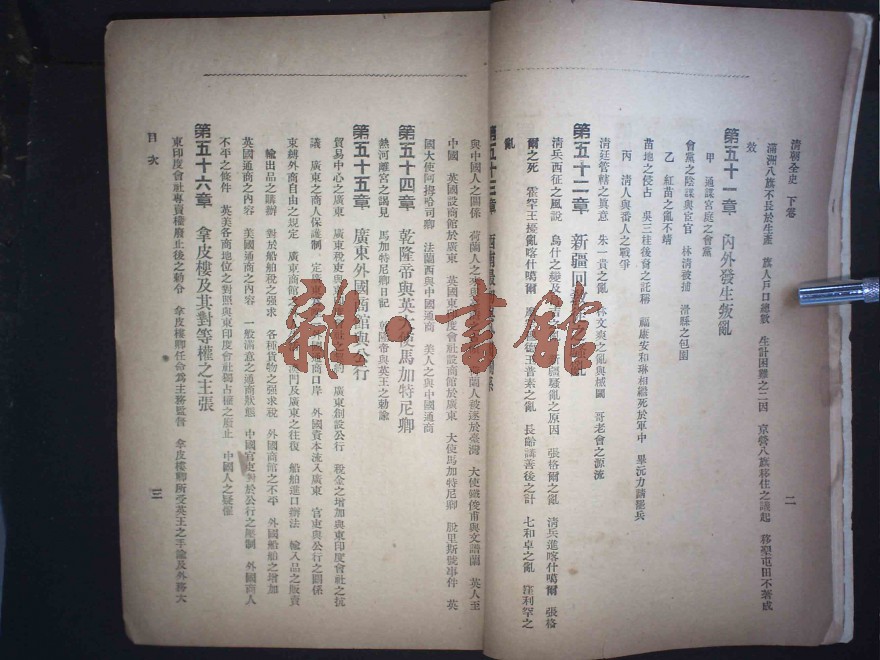 清朝全史 下卷
二
滿洲八旗不長於生產 旗人戶口總數 生計困難之二因 京營八旗移住之議起 移墾屯田不著成
效
第五十一章 內外發生叛亂
甲 通謀宮庭之會黨
會黨之陰謀與宦官 林清被捕 滑縣之包圍
乙 紅苗之亂不靖
苗地之侵占 吳三桂後裔之託稱 福康安和琳相繼死於軍中 畢沅力請罷兵
丙 清人與番人之戰爭
清廷管轄之真意 朱一貴之亂 林文爽之亂與械鬪 哥老會之源流
第五十二章 新疆回
清兵西征之風說 烏什之變及 疆騷亂之原因 張格爾之亂 清兵進喀什噶爾 張格
爾之死 霍罕王擾亂喀什噶爾 王普素之亂 長齡講善後之計 七和卓之亂 窪利罕之
亂
第五十三章 西南
與中國人之關係 荷蘭人之 蘭人被逐於臺灣 大使 與文譜蘭 英人至
中國 英國設商館於廣東 英國東印度會社設商館於廣東 大使馬加特尼卿 股里斯號事件 英
國大使阿姆哈司卿 法蘭西與中國通商 美人之與中國通商
第五十四章 乾隆帝與英 使馬加特尼卿
熱河離宮之謁見 馬加特尼卿日記 乾隆帝與英王之勅諭
第五十五章 廣東外國商館與公行
貿易中心之廣東 廣東稅吏與 廣東創設公行 稅金之增加與東印度會社之抗
議 廣東之商人保護制 定廣東 通商口岸 外國資本流入廣東 官吏與公行之關係
東縛外商自由之規定 廣東商館之 澳門及廣東之往復 船舶進口辦法 輸入品之販賣
輸出品之購辦 對於船舶稅之强求 各種貨物之强求稅 外國商館之不平 外國船舶之增加
英國通商之內容 美國通商之內容 一般滿意之通商狀態 中國官吏對於公行之壓制 外國商人
不平之條件 英美各商地位之對照與東印度會社獨占權之廢止 中國人之疑懼
第五十六章 拿皮樓及其對等權之主張
東印度會社專賣權廢止後之勅令 拿皮樓卿任命爲主務監督 拿皮樓卿所受英王之手諭及外務大
目次
三
雜·書館